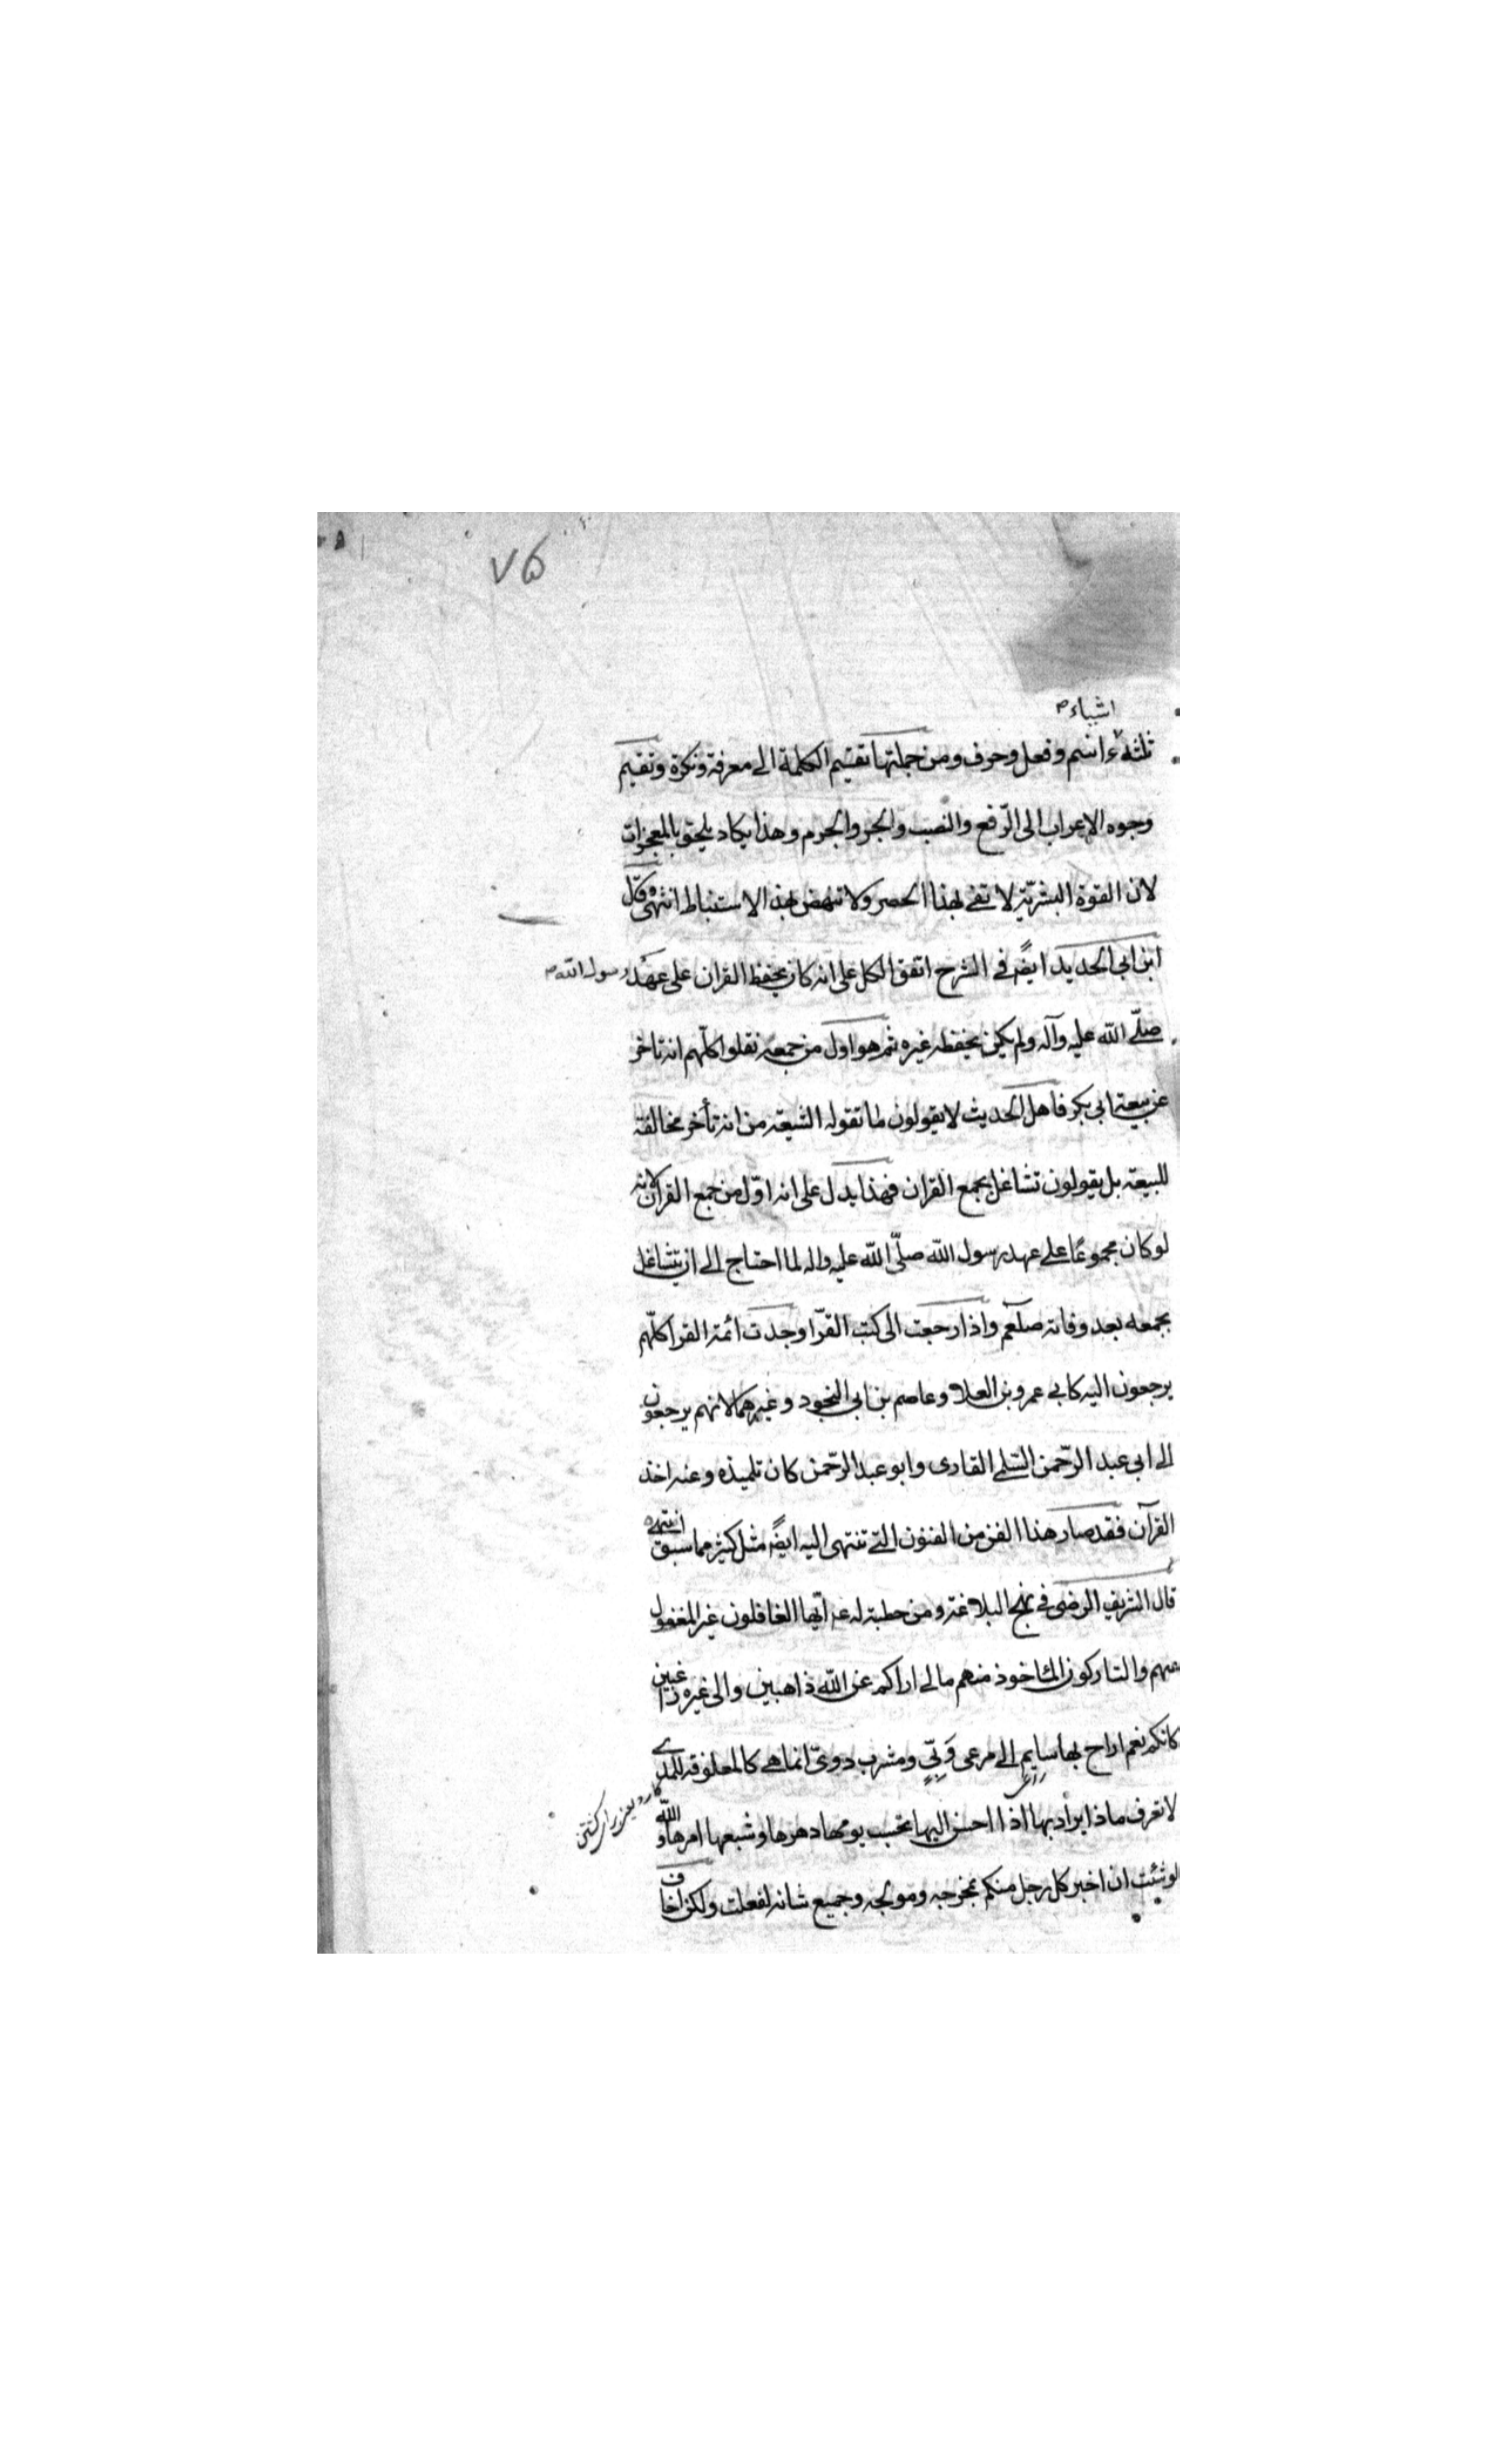 ٧٥
اشياء
ثلثة اسم وفعل وحرف ومن جملتها تقسيم الكلمة الى معرفة ونكرة وتقسيم
وجوه الاعراب الى الرّفع والنصب والجر والجزم وهذا يكاد يلحق بالمعجزات
لان القوة البشريّة لا تفي بهذا الحصر ولا تنهض بهذا الاستنباط انتهى وقال
ابن ابي الحديد ايضًا في الشرح اتفق الكل على انه كان يحفظ القران على عهد رسول الله
صلّى الله عليه وآله ولم يكن يحفظه غيره ثم هو اول من جمعه نقلوا كلّهم انه تاخر
عن بيعة ابي بكر فاهل الحديث لا يقولون ما تقوله الشيعة من انه تأخر مخالفة
للبيعة بل يقولون تشاغل بجمع القران فهذا يدل على انه اوّل من جمع القران لانه
لو كان مجموعًا على عهد رسول الله صلّى الله عليه واله لما احتاج الى ان يتشاغل
بجمعه بعد وفاته صلعم واذا رجعت الى كتب القرّا وجدت ائمة القرا كلّهم
يرجعون اليه كابي عمرو بن العلا وعاصم بن ابي النجود وغيرهما لانهم يرجعون
الى ابي عبد الرّحمن السّلمي القارى وابو عبد الرّحمن كان تلميذه وعنه اخذ
القرآن فقد صار هذا الفن من الفنون التي تنتهى اليه ايضًا مثل كثير مما سبق انتهى
قال الشريف الرضى في نهج البلاغة ومن خطبة له ع ايّها الغافلون غير المغفول
عنهم والتاركون المأخوذ منهم مالي اراكم عن الله ذاهبين والى غيره راغبين
كانكم نعم اراح بها سايم الى مرعى وَبِيّ ومشرب دويّ انما هي كالمعلوفة للمدى
لا تعرف ماذا يراد بها اذا احسن اليها تحسب يومها دهرها وشبعها امرها والله
لو شئت ان اخبر كل رجل منكم بمخرجه ومولجه وجميع شانه لفعلت ولكن اخاف